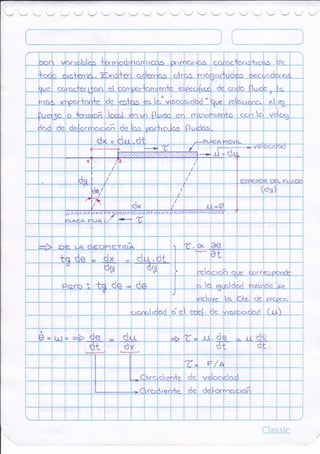 son variables termodinamicas primarias características de
todo sistema. Existen además otras magnitudes secundarias
que caracterizan el comportamiento específico de cada fluido, la
mas importante de estas es la "viscosidad" que relaciona el es
fuerzo o tensión local en un fluido en movimiento con la veloci
dad de deformación de las particulas fluidas.
dx = du.dt
τ
PLACA MOVIL
velocidad
u = du
dy
dθ
ESPESOR DEL FLUIDO
(dy)
dx
u=0
PLACA FIJA
τ
=> DE LA GEOMETRÍA
τ α ∂θ
∂t
tg dθ = dx = du.dt
dy dy
relación que corresponde
Pero : tg dθ = dθ
a la igualdad cuando se
incluye la Cte. de propor
cionalidad ó el coef. de viscosidad (μ)
θ̇ = ω = => dθ = du
dt dy
=> τ = μ. dθ = μ du
dt
τ = F/A
Gradiente de velocidad
Gradiente de deformación
Classic